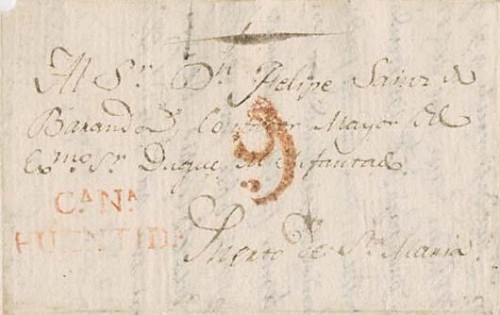 Al Sr. Dn. Felipe Sainz de
Baranda Contador Mayor del
Exmo. Sr. Duque del Infantado.
9
CA. NA.
FUENTID
Puerto de Sta. Maria.